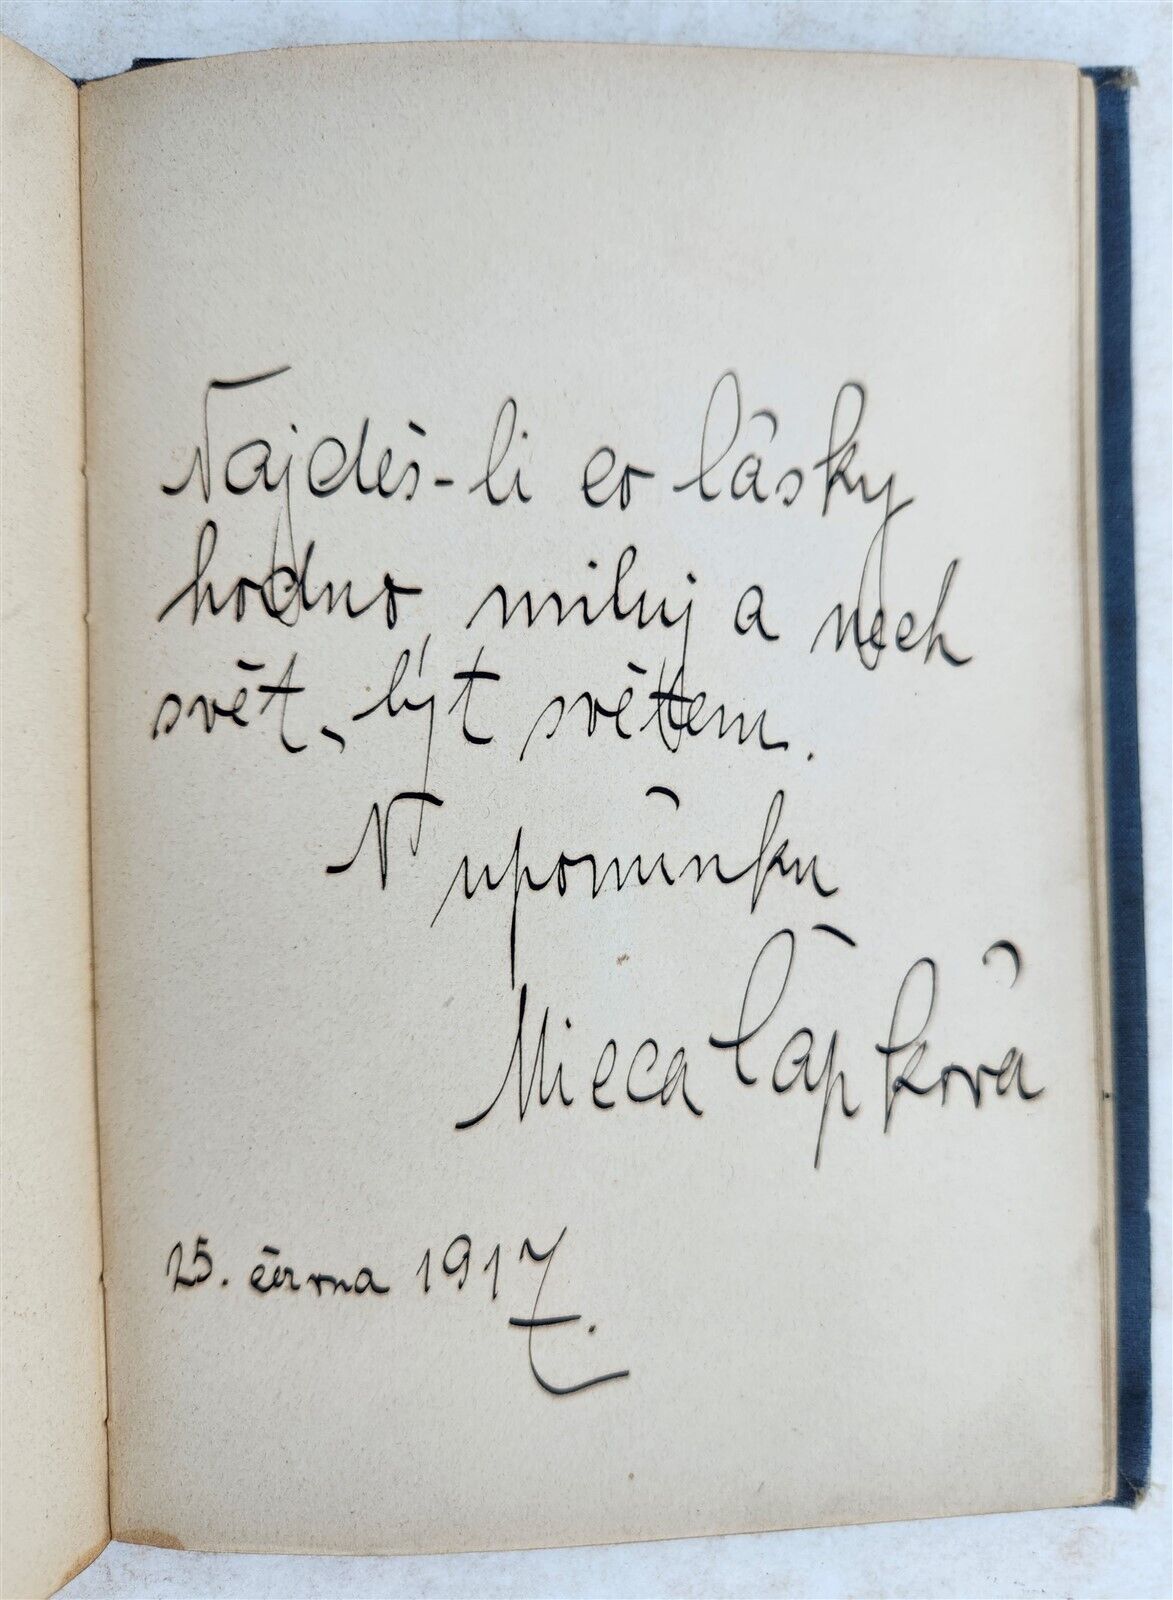 Najdeš-li co lásky
hodno, miluj a nech
svět, být světem.
V upomínku
Mieca Čápková
25. června 1917.